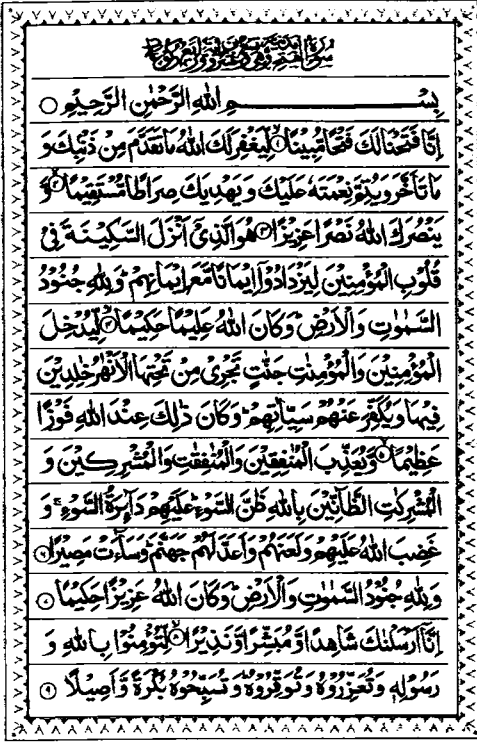 سُوْرَةُ الْفَتْحِ
بِسْـــــــمِ اللهِ الرَّحْمٰنِ الرَّحِيْمِ ○
اِنَّا فَتَحْنَا لَكَ فَتْحًا مُّبِيْنًا ۱ لِّيَغْفِرَ لَكَ اللهُ مَا تَقَدَّمَ مِنْ ذَنْۢبِكَ وَ
مَا تَاَخَّرَ وَيُتِمَّ نِعْمَتَهٗ عَلَيْكَ وَيَهْدِيَكَ صِرَاطًا مُّسْتَقِيْمًا ۲ وَّ
يَنْصُرَكَ اللهُ نَصْرًا عَزِيْزًا ۳ هُوَ الَّذِيْٓ اَنْزَلَ السَّكِيْنَةَ فِيْ
قُلُوْبِ الْمُؤْمِنِيْنَ لِيَزْدَادُوْٓا اِيْمَانًا مَّعَ اِيْمَانِهِمْ ؕ وَلِلهِ جُنُوْدُ
السَّمٰوٰتِ وَالْاَرْضِ ؕ وَكَانَ اللهُ عَلِيْمًا حَكِيْمًا ۴ لِّيُدْخِلَ
الْمُؤْمِنِيْنَ وَالْمُؤْمِنٰتِ جَنّٰتٍ تَجْرِيْ مِنْ تَحْتِهَا الْاَنْهٰرُ خٰلِدِيْنَ
فِيْهَا وَيُكَفِّرَ عَنْهُمْ سَيِّاٰتِهِمْ ؕ وَكَانَ ذٰلِكَ عِنْدَ اللهِ فَوْزًا
عَظِيْمًا ۵ وَّيُعَذِّبَ الْمُنٰفِقِيْنَ وَالْمُنٰفِقٰتِ وَالْمُشْرِكِيْنَ وَ
الْمُشْرِكٰتِ الظَّآنِّيْنَ بِاللهِ ظَنَّ السَّوْءِ ؕ عَلَيْهِمْ دَآئِرَةُ السَّوْءِ ۚ وَ
غَضِبَ اللهُ عَلَيْهِمْ وَلَعَنَهُمْ وَاَعَدَّ لَهُمْ جَهَنَّمَ ؕ وَسَآءَتْ مَصِيْرًا ۶
وَلِلهِ جُنُوْدُ السَّمٰوٰتِ وَالْاَرْضِ ؕ وَكَانَ اللهُ عَزِيْزًا حَكِيْمًا ۷
اِنَّآ اَرْسَلْنٰكَ شَاهِدًا وَّمُبَشِّرًا وَّنَذِيْرًا ۸ لِّتُؤْمِنُوْا بِاللهِ وَ
رَسُوْلِهٖ وَتُعَزِّرُوْهُ وَتُوَقِّرُوْهُ ؕ وَتُسَبِّحُوْهُ بُكْرَةً وَّاَصِيْلًا ۹